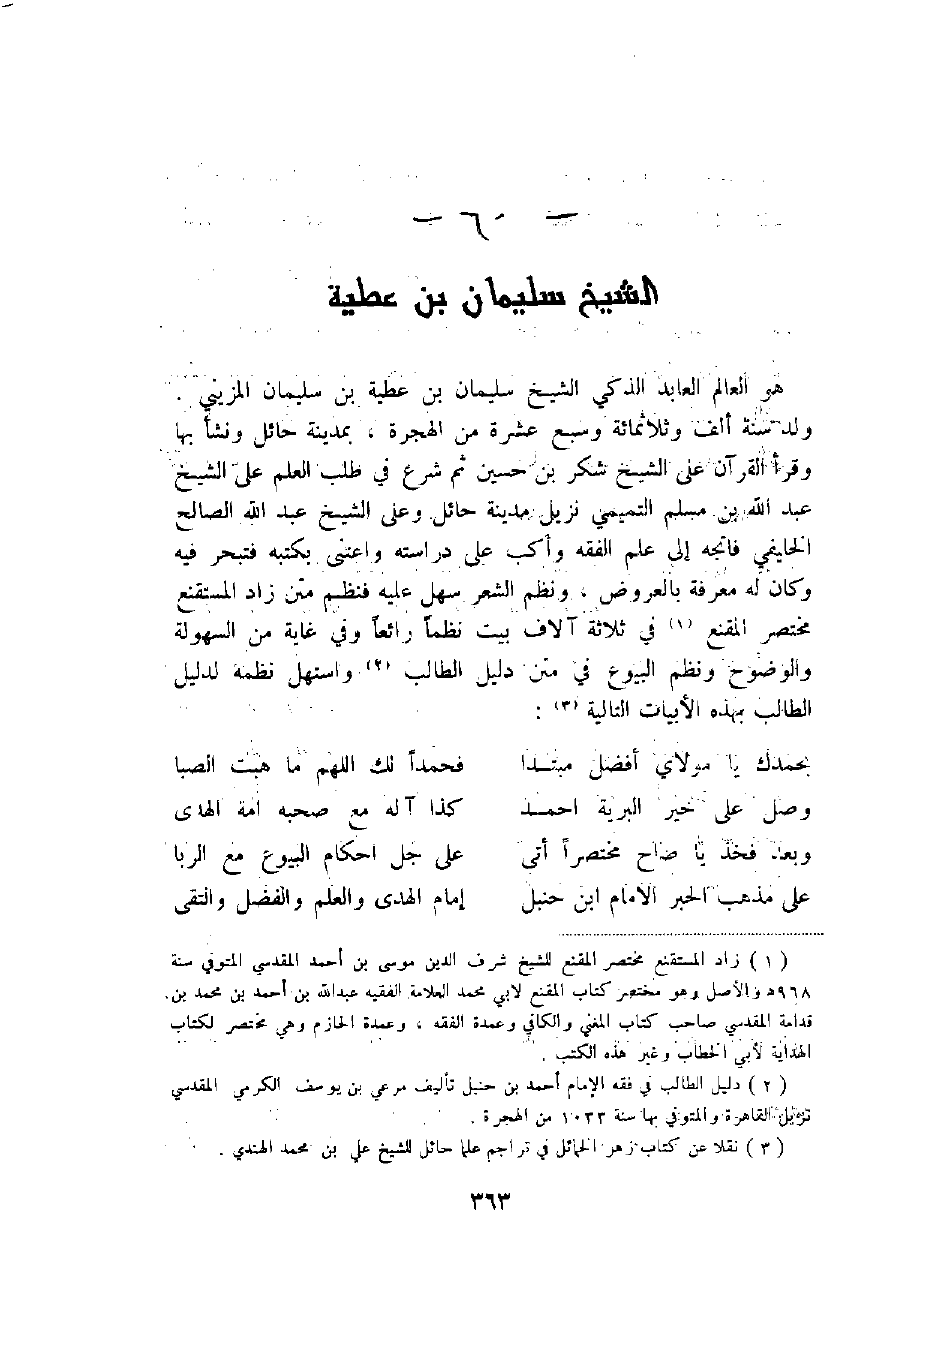 — ٦٠ —
الشيخ سليمان بن عطية
هو العالم العابد الذكي الشيخ سليمان بن عطية بن سليمان المزيني .
ولد سنة ألف وثلاثمائة وسبع عشرة من الهجرة ، بمدينة حائل ونشأ بها
وقرأ القرآن على الشيخ شكر بن حسين ثم شرع في طلب العلم على الشيخ
عبد الله بن مسلم التميمي نزيل مدينة حائل وعلى الشيخ عبد الله الصالح
الخليفي فاتجه إلى علم الفقه وأكب على دراسته واعتنى بكتبه فتبحر فيه
وكان له معرفة بالعروض ، ونظم الشعر سهل عليه فنظم متن زاد المستقنع
مختصر المقنع (١) في ثلاثة آلاف بيت نظماً رائعاً وفي غاية من السهولة
والوضوح ونظم البيوع في متن دليل الطالب (٢) واستهل نظمه لدليل
الطالب بهذه الأبيات التالية (٣) :
بحمدك يا مولاي أفضل مبتدا فحمداً لك اللهم ما هبت الصبا
وصل على خير البرية احمد كذا آله مع صحبه امة الهدى
وبعد فخذ يا صاح مختصراً أتى على جل احكام البيوع مع الربا
على مذهب الحبر الامام ابن حنبل إمام الهدى والعلم والفضل والتقى
( ١ ) زاد المستقنع مختصر المقنع للشيخ شرف الدين موسى بن أحمد المقدسي المتوفي سنة
٩٦٨ه والأصل وهو مختصر كتاب المقنع لابي محمد العلامة الفقيه عبدالله بن أحمد بن محمد بن
قدامة المقدسي صاحب كتاب المغني والكافي وعمدة الفقه ، وعمدة الحازم وهي مختصر لكتاب
الهداية لأبي الخطاب وغير هذه الكتب .
( ٢ ) دليل الطالب في فقه الإمام أحمد بن حنبل تأليف مرعي بن يوسف الكرمي المقدسي
نزيل القاهرة والمتوفي بها سنة ١٠٣٣ من الهجرة .
( ٣ ) نقلا عن كتاب زهر الخمائل في تراجم علما حائل للشيخ علي بن محمد الهندي .
٣٦٣